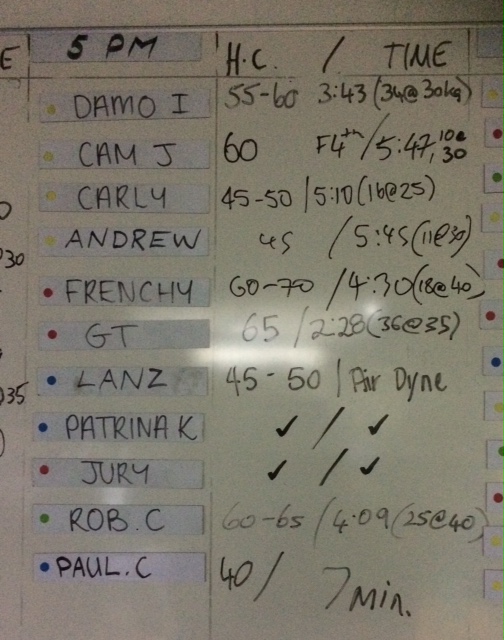 E 5 PM H.C. / TIME
DAMO I 55-60 3:43 (34@30kg)
CAM J 60 F4th / 5:47, 10@30
CARLY 45-50 / 5:10 (16@25)
ANDREW 45 / 5:45 (11@30)
30
FRENCHY 60-70 / 4:30 (18@40)
GT 65 / 2:28 (36@35)
LANZ 45-50 / Air Dyne
35
PATRINA K ✓ / ✓
JURY ✓ / ✓
ROB.C 60-65 / 4:09 (25@40)
PAUL.C 40 / 7 min.